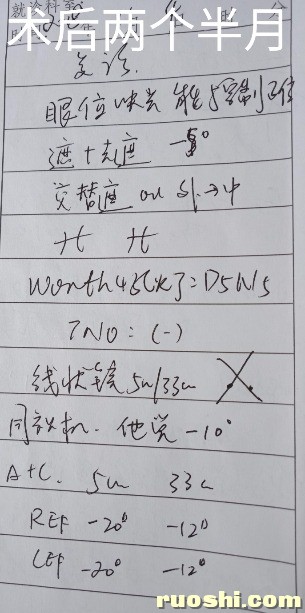 就诊科室
术后两个半月
复诊.
眼位
遮+去遮
交替遮 ou 外→中
Worth4点灯: D5N5
TNO: (-)
线状镜 5m/33cm
同视机. 他觉 -10°
A+C. 5m 33c
REF -20△ -12△
LEF -20△ -12△
ruoshi.com